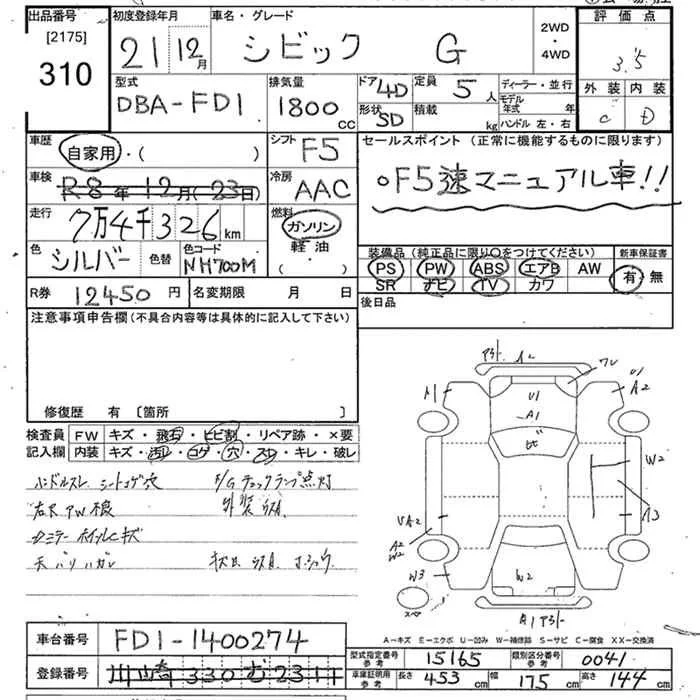 出品番号
[2175]
310
初度登録年月
21 12月
車名・グレード
シビック G
2WD
・
4WD
評価点
3.5
型式
DBA-FD1
排気量
1800 CC
ドア 4D
定員 5人
形状 SD
積載 kg
ディーラー・並行
モデル年式 年
ハンドル 左・右
外装 内装
C D
車歴
自家用・( )
シフト F5
セールスポイント (正常に機能するものに限ります)
○F5速マニュアル車!!
車検
R8年12月(23日)
冷房 AAC
走行
7万4千326km
燃料
ガソリン
軽油
・( )
色 シルバー
色替
色コード NH700M
装備品 (純正品に限り○をつけてください)
PS PW ABS エアB AW
SR ナビ TV カワ
新車保証書
有・無
R券 12450円
名変期限 月 日
後日品
注意事項申告欄 (不具合内容等は具体的に記入して下さい)
修復歴 有 〔箇所 〕
検査員記入欄
FW キズ・飛石・ヒビ割・リペア跡・×要
内装 キズ・汚レ・コゲ・穴・スレ・キレ・破レ
ハンドルスレ シートコゲ穴 E/Gチェックランプ点灯
右R PW不良
ホイールキズ
天バリハガレ
A2
M
U1
A2
U1
A1
W2
UA2
A2
W2
W3
W2
A1
スペア
A-キズ E-エクボ U-凹み W-補修跡 S-サビ C-腐食 XX-交換済
車台番号 FD1-1400274
登録番号 川崎330む2311
型式指定番号 参考 15165
類別区分番号 参考 0041
車庫証明用 参考 長さ 453cm 幅 175cm 高さ 144cm